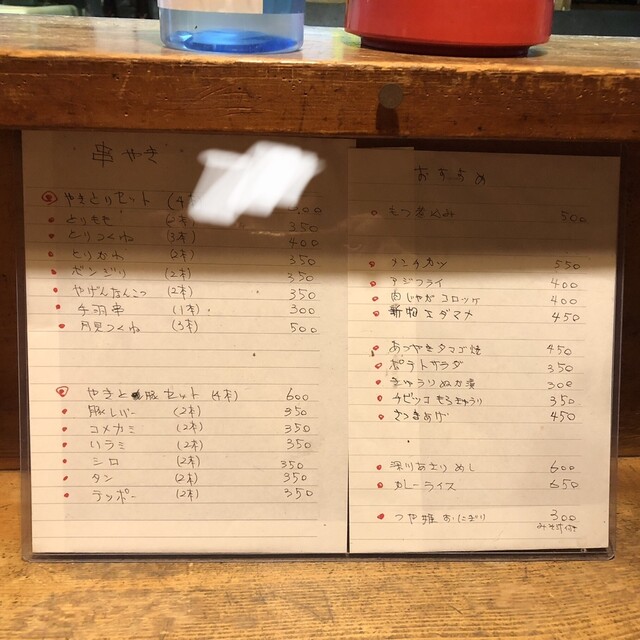 串やき
やきとりセット (4本
とりもも (2本) 350
とりつくね (3本) 400
とりかわ (2本) 350
ボンジリ (2本) 350
やげんなんこつ (2本) 350
手羽串 (1本) 300
月見つくね (3本) 500
やきとん セット (4本) 600
豚レバー (2本) 350
コメカミ (2本) 350
ハラミ (2本) 350
シロ (2本) 350
タン (2本) 350
テッポー (2本) 350
おすすめ
もつ煮込み 500
メンチカツ 550
アジフライ 400
肉じゃがコロッケ 400
新物エダマメ 450
あつやきタマゴ焼 450
ポテトサラダ 350
きゅうりぬか漬 300
チビッコもろきゅうり 350
さつまあげ 450
深川あさりめし 600
カレーライス 650
つや姫おにぎり 300
みそ汁付